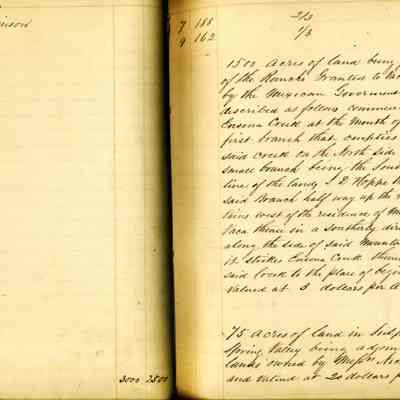 3000 7500
7 188
9 162
2/3
1/3
1500 Acres of land being
of the Ranch Granted to
by the Mexican Government
described as follows commen
Ensena Creek at the Mouth of
first branch that empties
said creek on the North side
small branch being the Sou
line of the lands J D Hoppe
said Branch half way up the
tains west of the residence of M
Vaca thence in a southerly dir
along the side of said Mounta
it strikes Ensena Creek thence
said Creek to the place of begin
valued at 5 dollars per A
75 Acres of land in
Spring Valley being adjoin
lands owned by
and valued at 20 dollars p